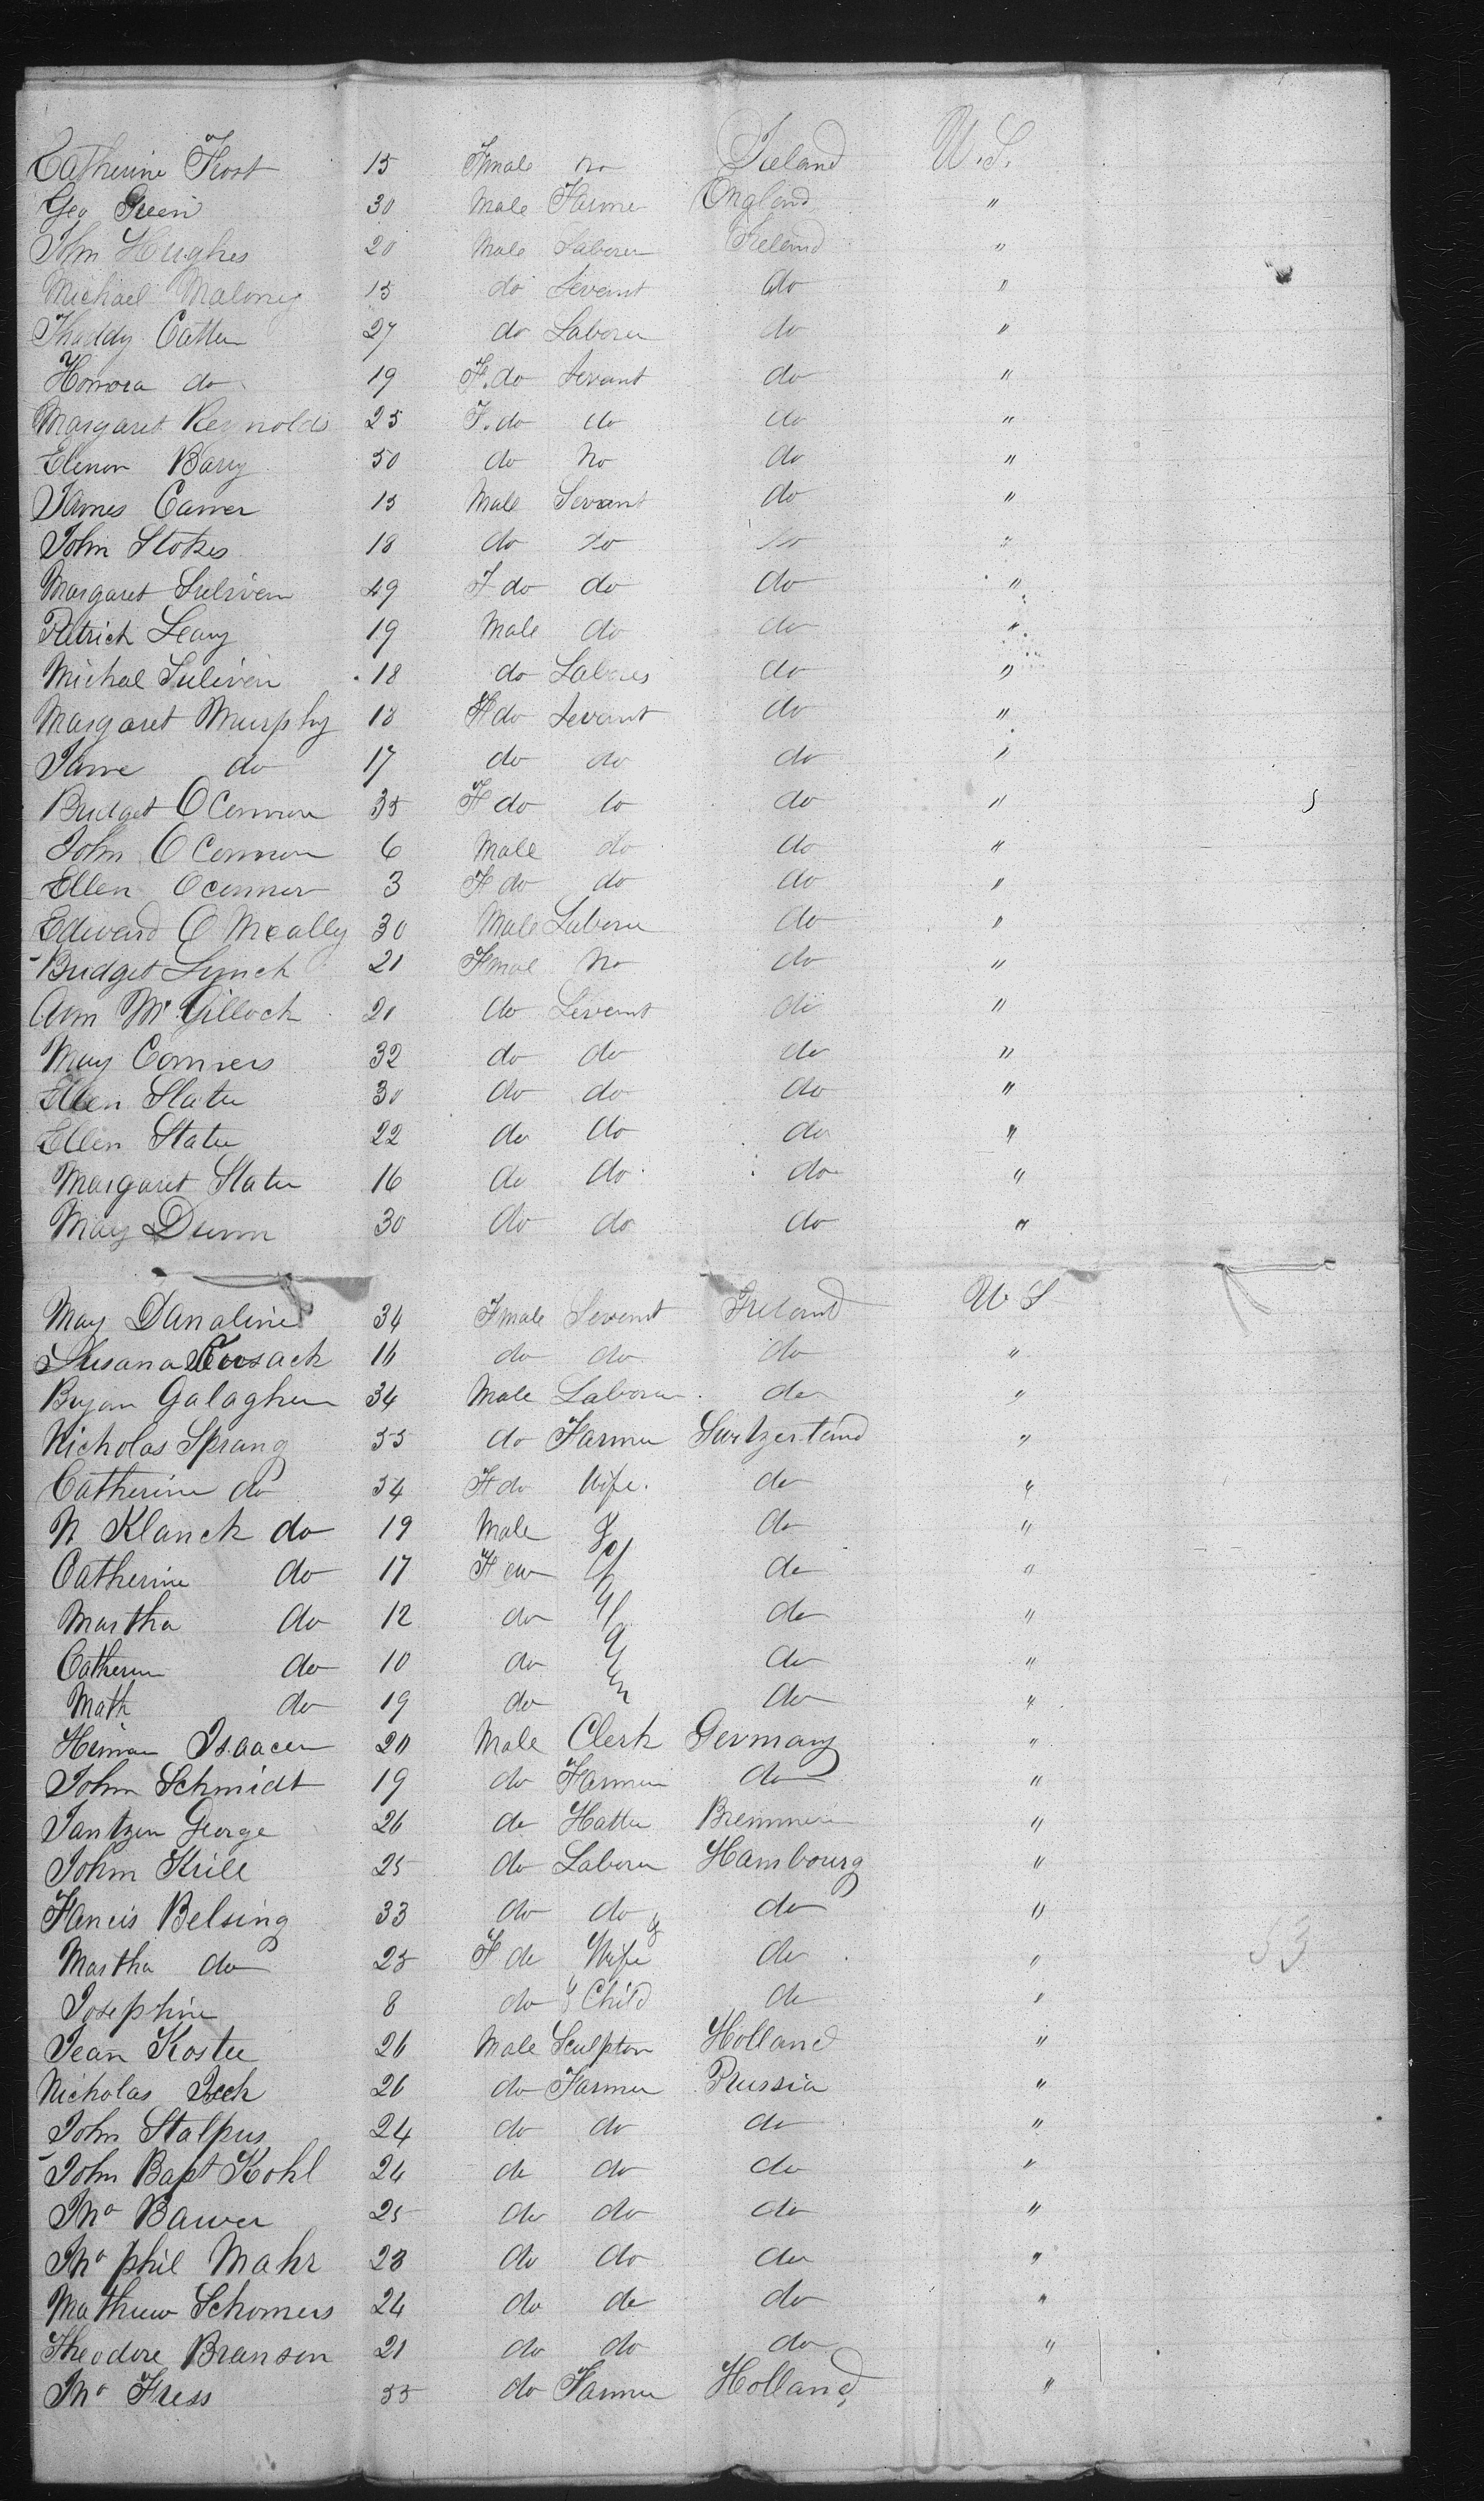 Catherine Frost 15 Fmale no Ireland U.S.
Geo Green 30 Male Farmer England "
Jhn Hughes 20 Male Laborer Ireland "
Michael Maloney 15 do Sevant do "
Thaddy Catter 27 do Laborer do "
Honora do 19 F. do Sevant do "
Margaret Reynolds 25 F. do do do "
Elenor Barry 50 do No do "
James Carver 15 Male Servant do "
John Stokes 18 do do do "
Margaret Suliven 49 F do do do "
Patrick Leary 19 Male do do "
Michal Suliven 18 do Labores do "
Margaret Murphy 18 F do Sevant do "
Jane do 17 do do do "
Bridget OConnor 35 F do do do "
John OConnor 6 Male do do "
Ellen Oconner 3 F do do do "
Edward O Mcally 30 Male Laborer do "
Bridget Lynch 21 Fmal No do "
Ann Mc Gilloch 21 do Sevant do "
Mary Conners 32 do do do "
Ellen Slater 30 do do do "
Ellen Slater 22 do do do "
Margaret Slater 16 do do do "
Mary Dunn 30 do do do "
Mary Danaline 34 Fmale Sevant Ireland U S
Susana Cusack 16 do do do "
Bryan Galagher 34 Male Laborer do "
Nicholas Sprang 55 do Farmer Switzerland "
Catherine do 54 F do Wife do "
N Klanck do 19 Male do "
Catherine do 17 F do do "
Martha do 12 do do "
Catherin do 10 do do "
Math do 19 do do "
Heiman Isaacen 20 Male Clerk Germany "
John Schmidt 19 do Farmer do "
Jantzen George 26 do Hatter Bremmen "
John Krill 25 do Laborer Hambourg "
Francis Belsing 33 do do do "
Martha do 25 F do Wife do "
Josephine 8 do & Child do "
Jean Koster 26 Male Sculptor Holland "
Nicholas Jseck 26 do Farmer Prussia "
John Stalpus 24 do do do "
John Bapt Kohl 24 do do do "
Jno Bawer 25 do do do "
Jno phil Mahr 23 do do do "
Mathew Schomers 24 do do do "
Theodore Branson 21 do do do "
Jno Fress 55 do Farmer Holland "
53